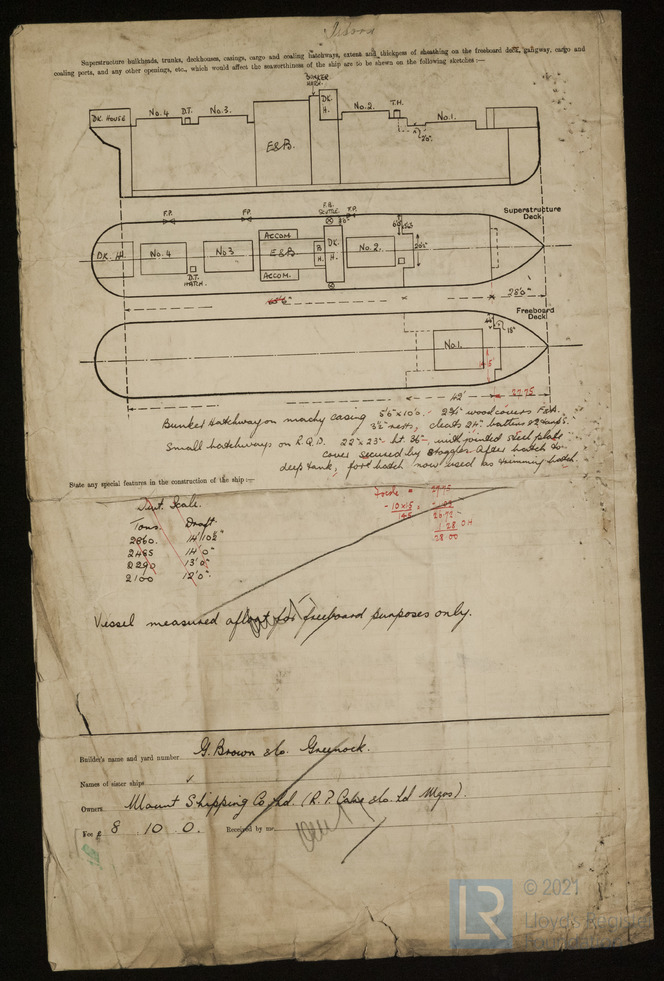 Superstructure bulkheads, trunks, deckhouses, casings, cargo and coaling hatchways, extent and thickness of sheathing on the freeboard deck, gangway, cargo and
coaling ports, and any other openings, etc., which would affect the seaworthiness of the ship are to be shewn on the following sketches :—
BUNKER
HATCH.
DK. HOUSE
No.4
D.T.
No.3.
E&B.
DK.
H.
No.2.
T.H.
No.1.
Superstructure
Deck
F.P.
F.P.
SCUTTLE
ACCOM.
DK. H.
No.4
No3
E&B
B
H.
DK.
H.
No.2.
D.T.
HATCH.
ACCOM.
28'0"
Freeboard
Deck
No.1.
15"
42'
27.75
Bunker Hatchway on machy casing 5'6"x10'0". 2¾" wood covers F&A.
3½" rests, cleats 24" battens &
Small hatchways on R.Q.D. 22"x23" ht. 36", with jointed steel plate
cover secured by toggles. After hatch to
deep tank, for'd hatch now used as trimming hatch.
State any special features in the construction of the ship :—
Dwt. Scale.
Tons. Draft.
2860. 14'10½"
2465 14'0"
2290 13'0"
2100 12'0"
27.75
28.00
Vessel measured afloat for freeboard purposes only.
Builder's name and yard number G. Brown &Co. Greenock.
Names of sister ships
Owners Mount Shipping Co Ltd. (R.P. Cake &Co. Ld Mgos).
Fee £ 8 . 10 . 0. Received by me
LR
© 2021
Lloyd's Register
Foundation